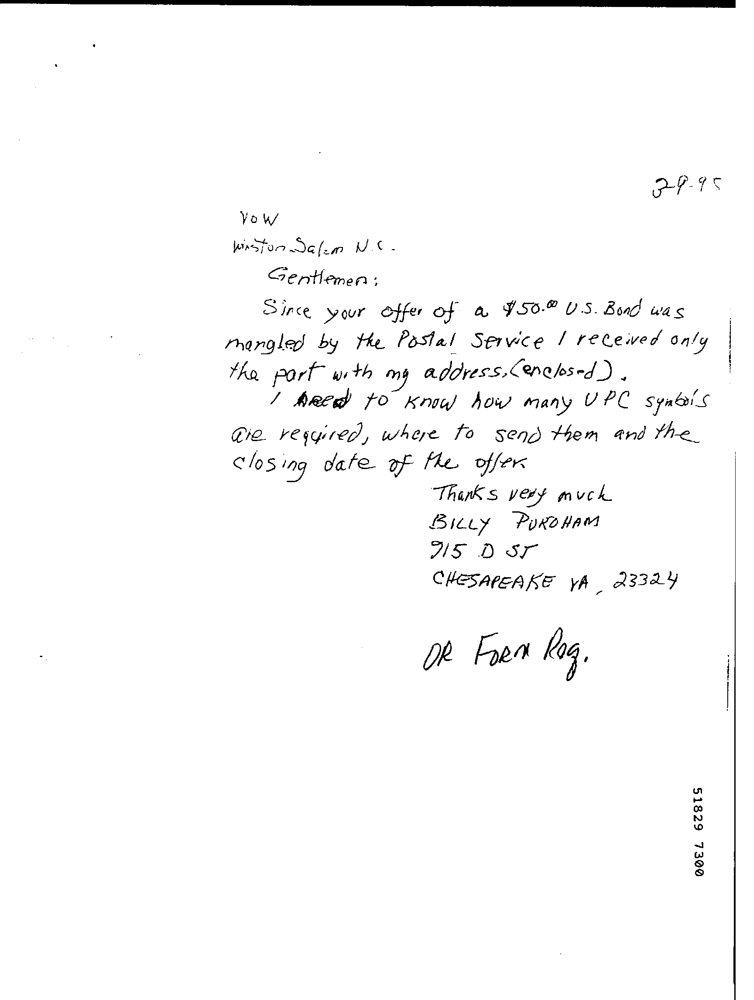 3-9-95
VOW
Winston Salem N.C.
Gentlemen:
Since your offer of a $50.00 U.S. Bond was
mangled by the Postal Service I received only
the part with my address, (enclosed).
I need to know how many UPC symbols
are required, where to send them and the
closing date of the offer
Thanks very much
BILLY PURDHAM
915 D ST
CHESAPEAKE VA, 23324
OR FORM Req.
51829 7300